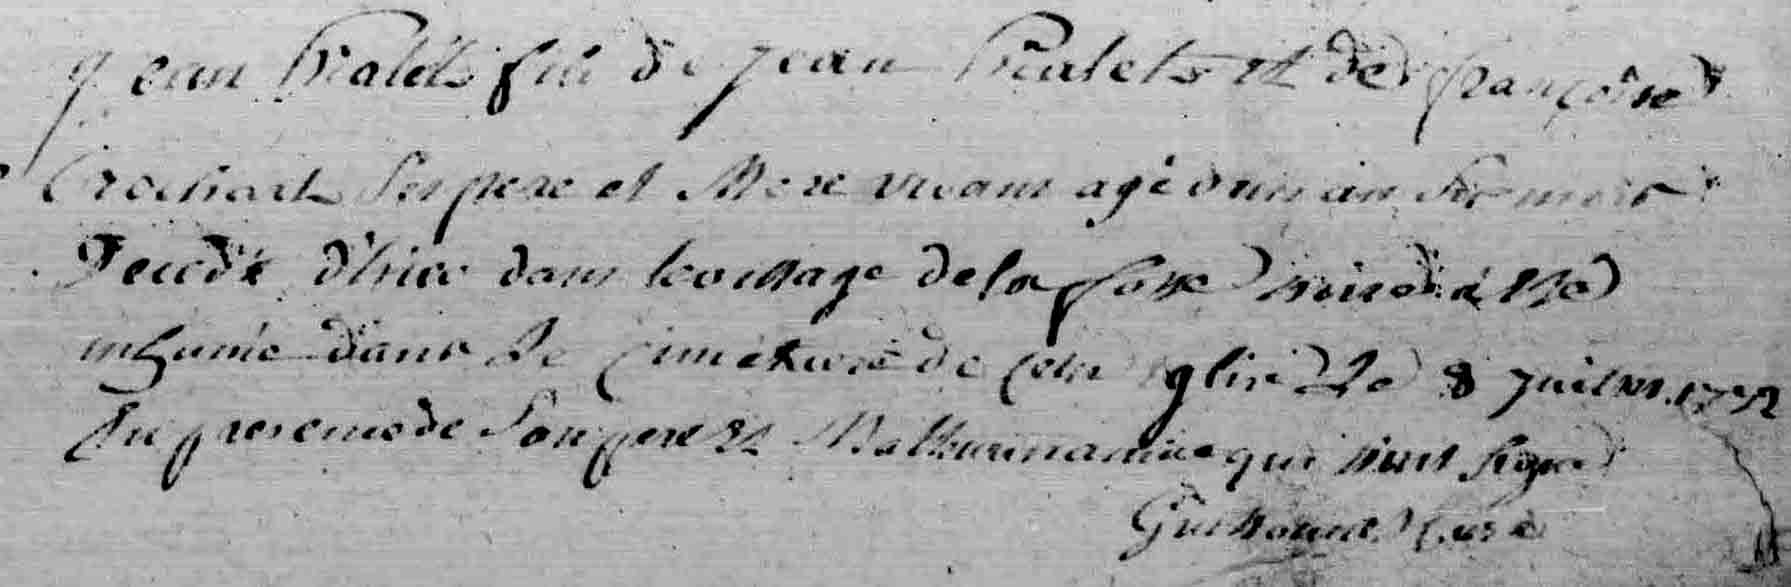 Jean Pialets fils de Jean Pialets et de françoise
Crochart Ses pere et Mere vivans agé d'un an Six mois
decedé d'hier dans le vilage de la fosse noire a Esté
inhumé dans Le Cimetiere de cette Eglise Le 8 Juillet 1772
En presence de Son pere Et Mathurin qui n'ont Signé
Curé